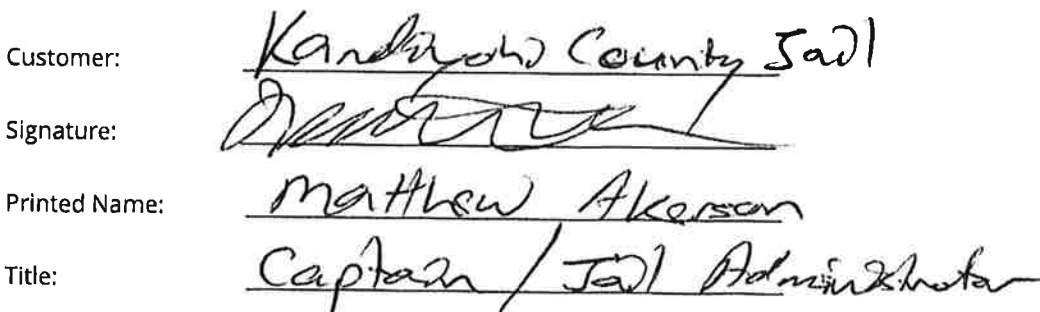 Customer: Kandiyohi County Jail
Signature:
Printed Name: Matthew Akerson
Title: Captain / Jail Administrator